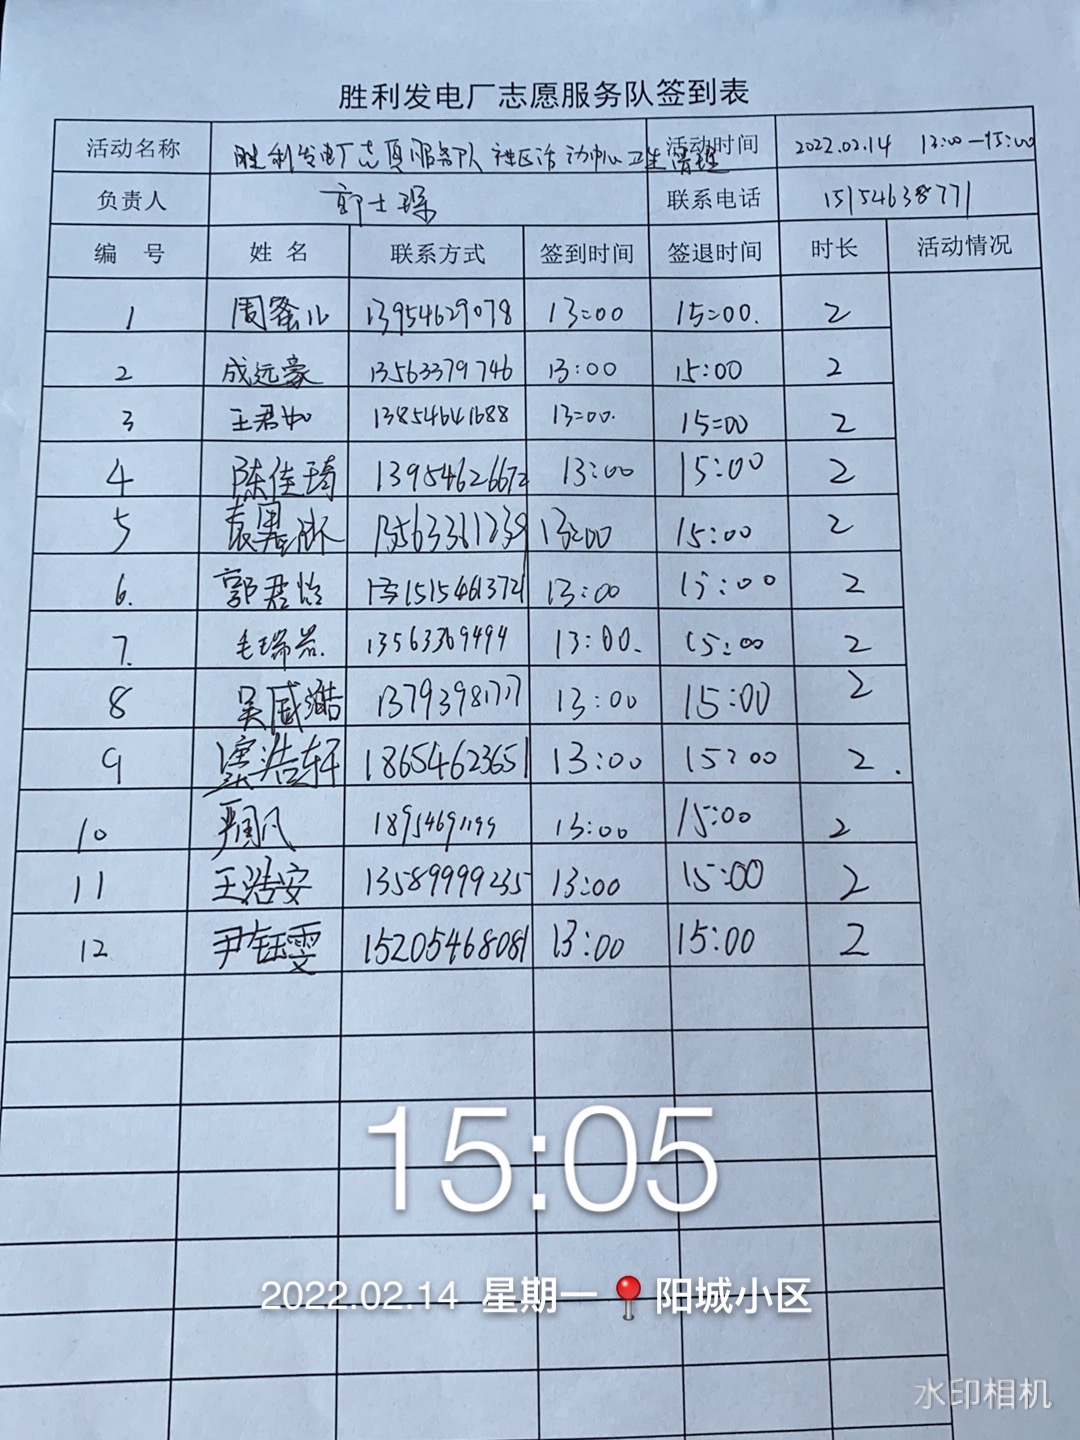 胜利发电厂志愿服务队签到表
活动名称 胜利发电厂志愿服务队社区活动中心卫生清理 活动时间 2022.02.14 13:00-15:00
负责人 联系电话 15154638771
编 号 姓 名 联系方式 签到时间 签退时间 时长 活动情况
1 13954629078 13:00 15:00. 2
2 成远豪 13563379746 13:00 15:00 2
3 王君如 13854641688 13:00. 15:00 2
4 陈佳琦 13954626672 13:00 15:00 2
5 13:00 15:00 2
6. 郭君怡 13:00 15:00 2
7. 毛瑞岩. 13563369494 13:00. 15:00 2
8 吴威澔 13:00 15:00 2
9 浩轩 18654623651 13:00 15:00 2.
10 13:00 15:00 2
11 王浩安 13589999235 13:00 15:00 2
12 尹钰雯 15205468081 13:00 15:00 2
15:05
2022.02.14 星期一 阳城小区
水印相机